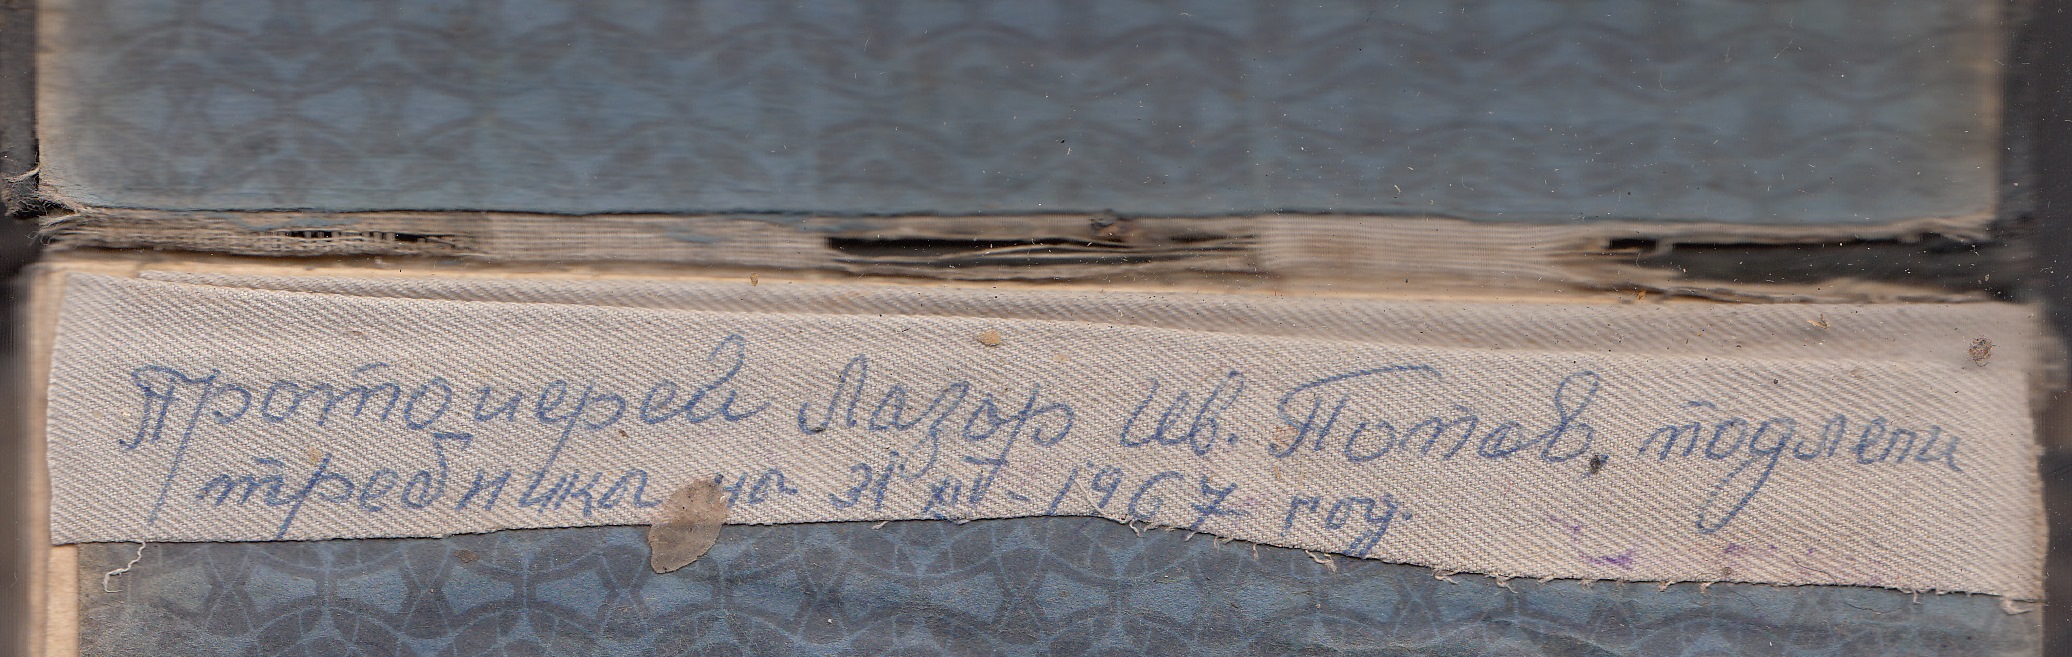 Протоиерей Лазар Ив. Попов, подлепи
требника на 31 XII - 1967 год.